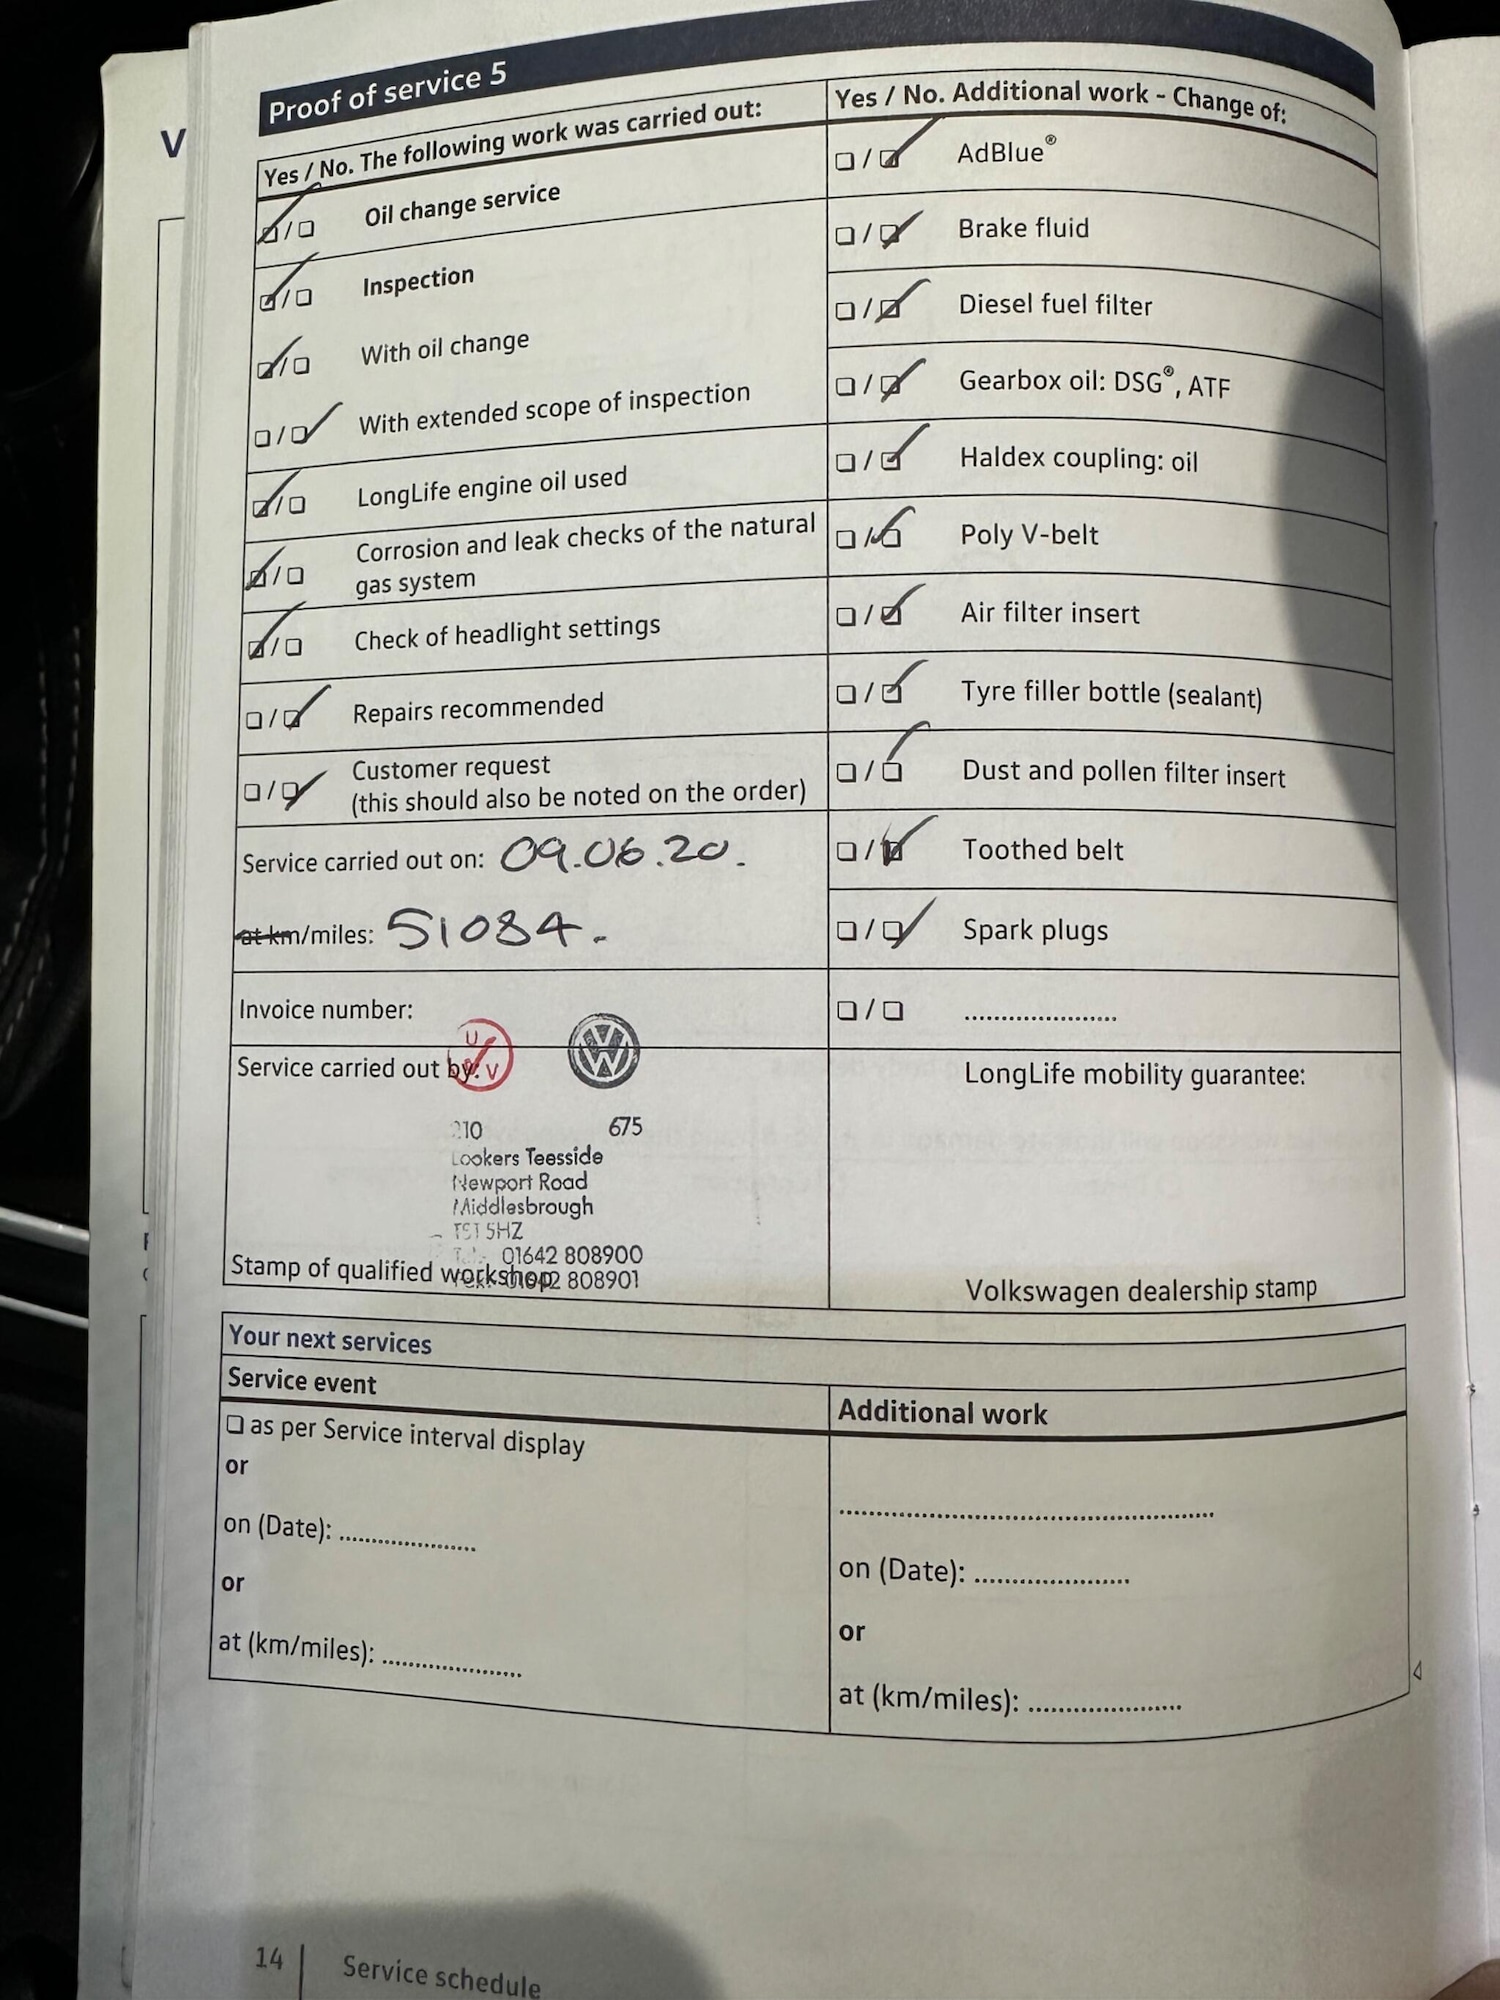 V
Proof of service 5
Yes / No. The following work was carried out:
Oil change service
Inspection
With oil change
With extended scope of inspection
LongLife engine oil used
Corrosion and leak checks of the natural
gas system
Check of headlight settings
Repairs recommended
Customer request
(this should also be noted on the order)
Service carried out on: 09.06.20.
at km/miles: 51084.
Invoice number:
Service carried out by:
U
V
VW
210 675
Lookers Teesside
Newport Road
Middlesbrough
TS1 5HZ
Tel: 01642 808900
01642 808901
Stamp of qualified workshop
Yes / No. Additional work - Change of:
AdBlue®
Brake fluid
Diesel fuel filter
Gearbox oil: DSG®, ATF
Haldex coupling: oil
Poly V-belt
Air filter insert
Tyre filler bottle (sealant)
Dust and pollen filter insert
Toothed belt
Spark plugs
.....................
LongLife mobility guarantee:
Volkswagen dealership stamp
Your next services
Service event
as per Service interval display
or
on (Date): ....................
or
at (km/miles): ....................
Additional work
..................................................
on (Date): .....................
or
at (km/miles): .....................
14 | Service schedule